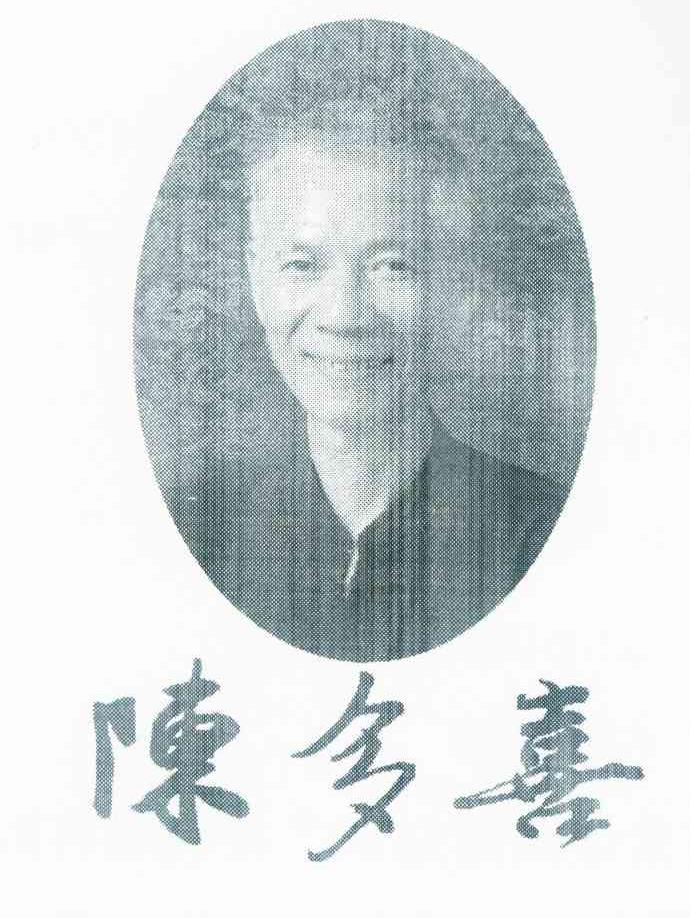 陳多喜